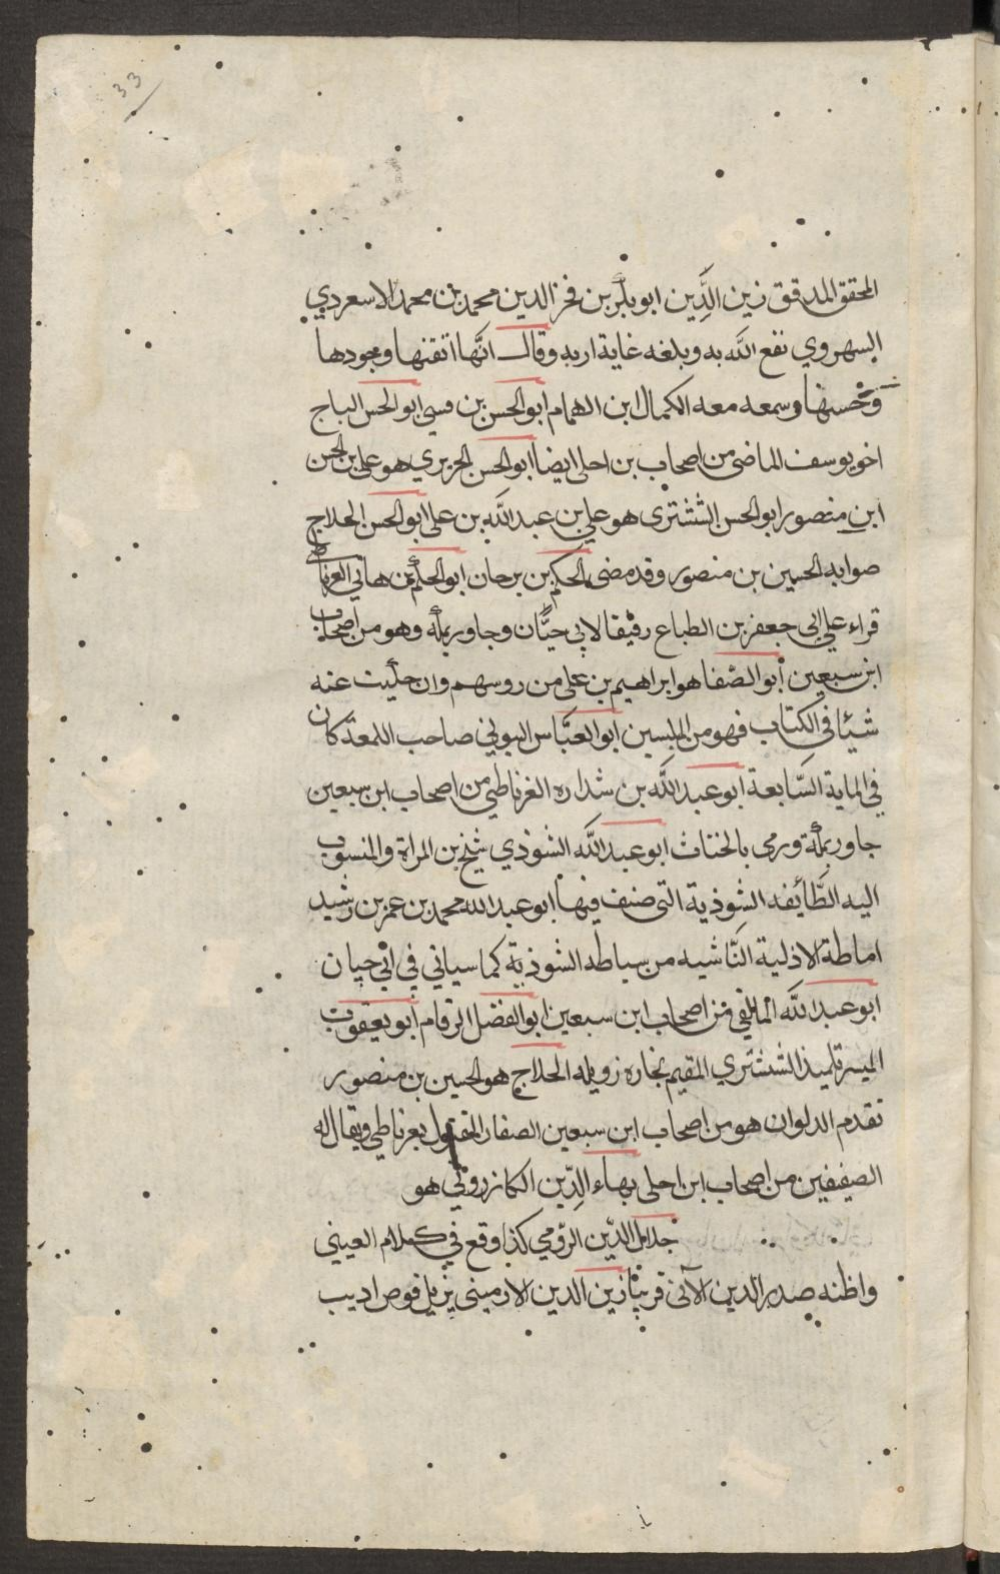 33
المحقق المدقق زين الدِّين ابو بكر بن فخر الدين محمد بن محمد الاسعردي
السهروي نفع الله به وبلغه غاية اربه وقال انَّها اتقنها ومجودها
وحسنها وسمعه معه الكمال ابن الهمام ابو الحسن بن مسي ابو الحسن الباج
اخو يوسف الماضي من اصحاب بن احلى ايضا ابو الحسن الجزيري هو علي بن الحسن
ابن منصور ابو الحسن الششتري هو علي بن عبد الله بن علي ابو الحسن الحلاج
صوابه الحسين بن منصور وقد مضى ابو الحكم بن برجان ابو الحكم بن هاني الغرناطي
قراء على ابي جعفر بن الطباع رفيقا لابي حيَّان وجاور بمكة وهو من اصحاب
ابن سبعين أبو الصّفا هو ابراهيم بن علي من روسهم وان حكيت عنه
شيئا في الكتاب فهو من الملبسين ابو العبَّاس البوني صاحب اللمعة كان
في الماية السَّابعة ابو عبد الله بن شداره الغرناطي من اصحاب ابن سبعين
جاور بمكة ورمي بالخناث ابو عبد الله الشوذي شيخ بن المراة والمنسوب
اليه الطَّائفه الشوذية التي صنف فيها ابو عبد الله محمد بن عمر بن رشيد
اماطة الاذلية النَّاشيه من سباطه الشوذية كما سياتي في ابي حيان
ابو عبد الله المالقي من اصحاب ابن سبعين ابو الفضل الرقام أبو يعقوب
الميسر تلميذ الششتري المقيم بحاره زويله الحلاج هو الحسين بن منصور
تقدم الدلوان هو من اصحاب ابن سبعين الصفار المقتول بغرناطي ويقال له
الصفيفين من اصحاب ابن احلى بهاء الدِّين الكازروني هو
جلال الدِّين الرومي كذا وقع في كلام العيني
واظنه صدر الدين الآتي قريبا زين الدين الارميني نزيل قوص اديب